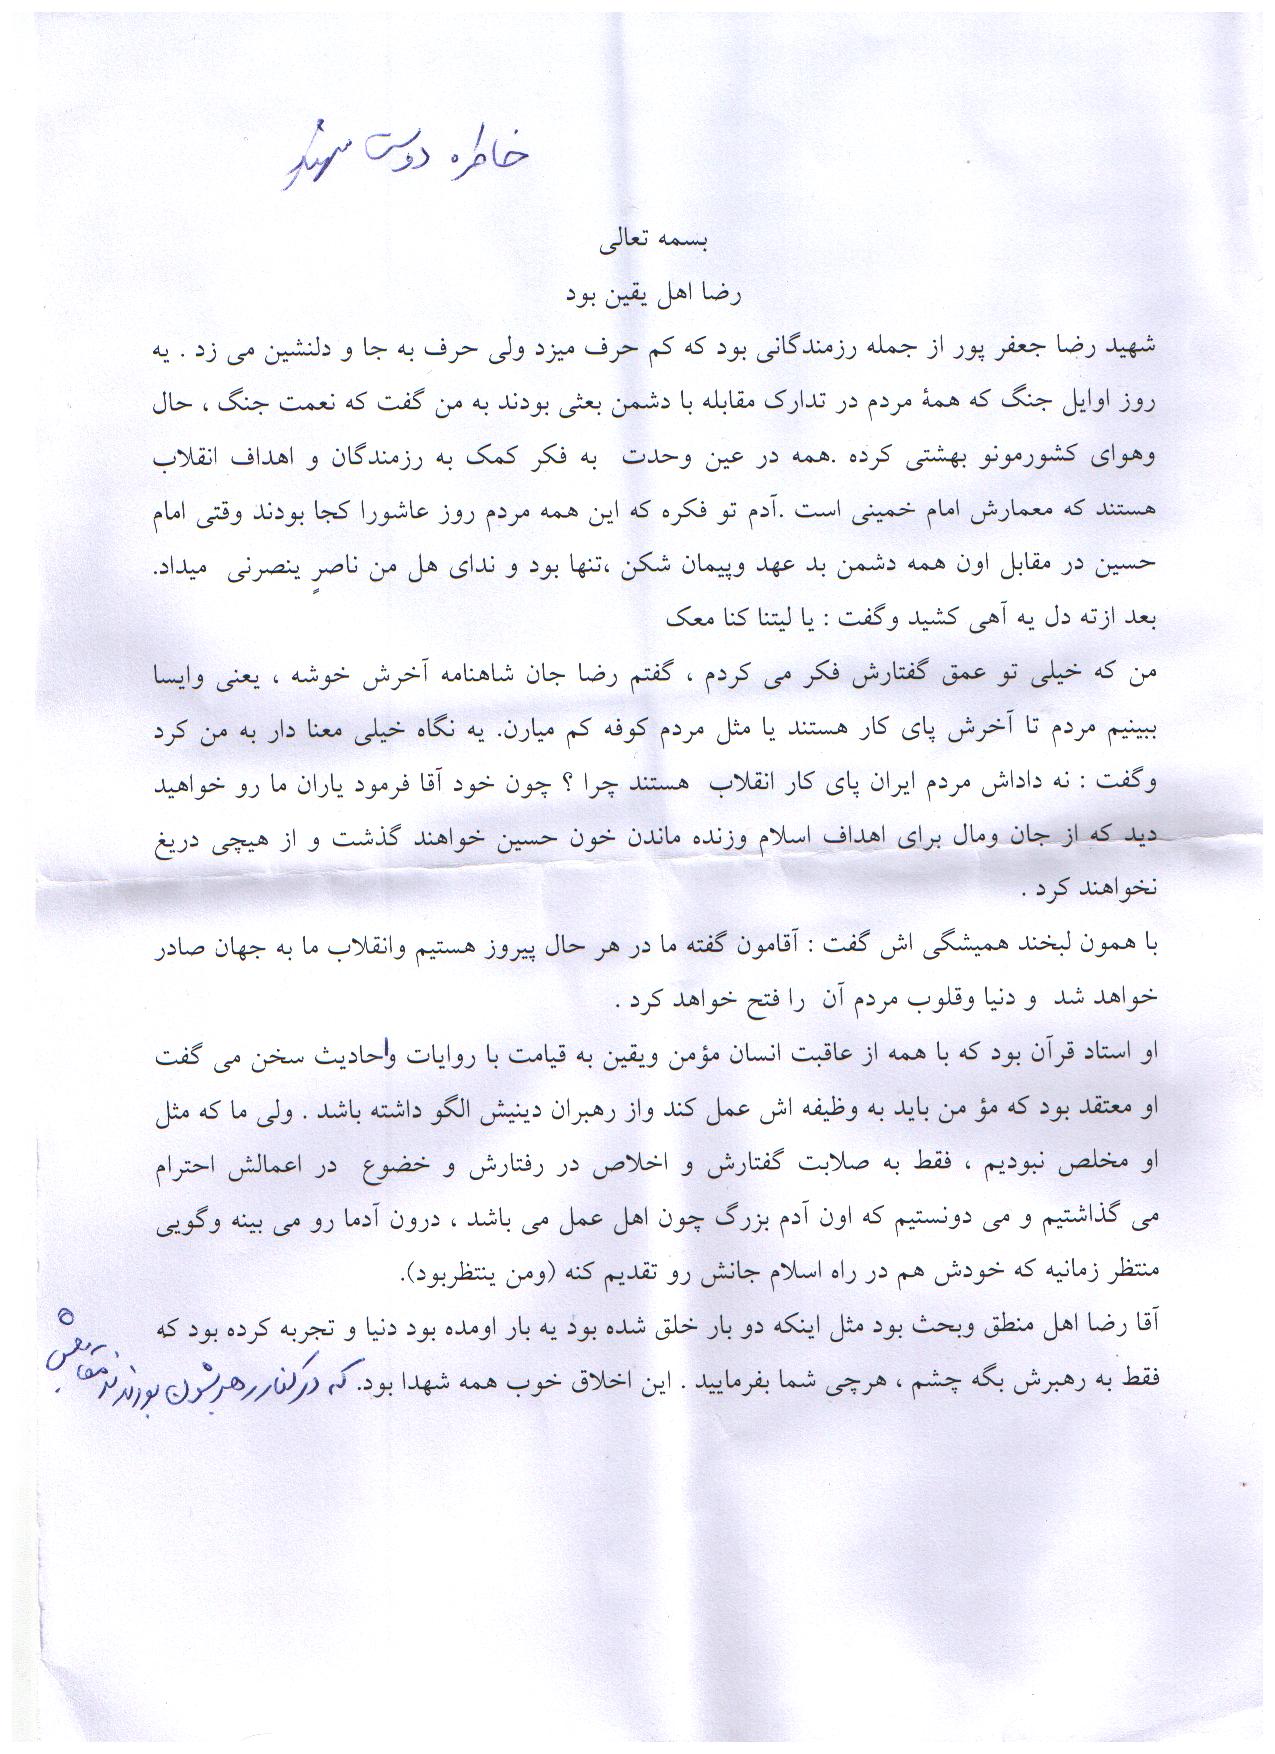 خاطره دوست شهید
بسمه تعالی
رضا اهل یقین بود
شهید رضا جعفر پور از جمله رزمندگانی بود که کم حرف میزد ولی حرف به جا و دلنشین می زد . یه
روز اوایل جنگ که همۀ مردم در تدارک مقابله با دشمن بعثی بودند به من گفت که نعمت جنگ ، حال
وهوای کشورمونو بهشتی کرده .همه در عین وحدت به فکر کمک به رزمندگان و اهداف انقلاب
هستند که معمارش امام خمینی است .آدم تو فکره که این همه مردم روز عاشورا کجا بودند وقتی امام
حسین در مقابل اون همه دشمن بد عهد وپیمان شکن ،تنها بود و ندای هل من ناصرٍ ینصرنی میداد.
بعد ازته دل یه آهی کشید وگفت : یا لیتنا کنا معک
من که خیلی تو عمق گفتارش فکر می کردم ، گفتم رضا جان شاهنامه آخرش خوشه ، یعنی وایسا
ببینیم مردم تا آخرش پای کار هستند یا مثل مردم کوفه کم میارن. یه نگاه خیلی معنا دار به من کرد
وگفت : نه داداش مردم ایران پای کار انقلاب هستند چرا ؟ چون خود آقا فرمود یاران ما رو خواهید
دید که از جان ومال برای اهداف اسلام وزنده ماندن خون حسین خواهند گذشت و از هیچی دریغ
نخواهند کرد .
با همون لبخند همیشگی اش گفت : آقامون گفته ما در هر حال پیروز هستیم وانقلاب ما به جهان صادر
خواهد شد و دنیا وقلوب مردم آن را فتح خواهد کرد .
او استاد قرآن بود که با همه از عاقبت انسان مؤمن ویقین به قیامت با روایات واحادیث سخن می گفت
او معتقد بود که مؤ من باید به وظیفه اش عمل کند واز رهبران دینیش الگو داشته باشد . ولی ما که مثل
او مخلص نبودیم ، فقط به صلابت گفتارش و اخلاص در رفتارش و خضوع در اعمالش احترام
می گذاشتیم و می دونستیم که اون آدم بزرگ چون اهل عمل می باشد ، درون آدما رو می بینه وگویی
منتظر زمانیه که خودش هم در راه اسلام جانش رو تقدیم کنه (ومن ینتظربود).
آقا رضا اهل منطق وبحث بود مثل اینکه دو بار خلق شده بود یه بار اومده بود دنیا و تجربه کرده بود که
فقط به رهبرش بگه چشم ، هرچی شما بفرمایید . این اخلاق خوب همه شهدا بود. که در کنار رهبرشون بودند نه مقابلش